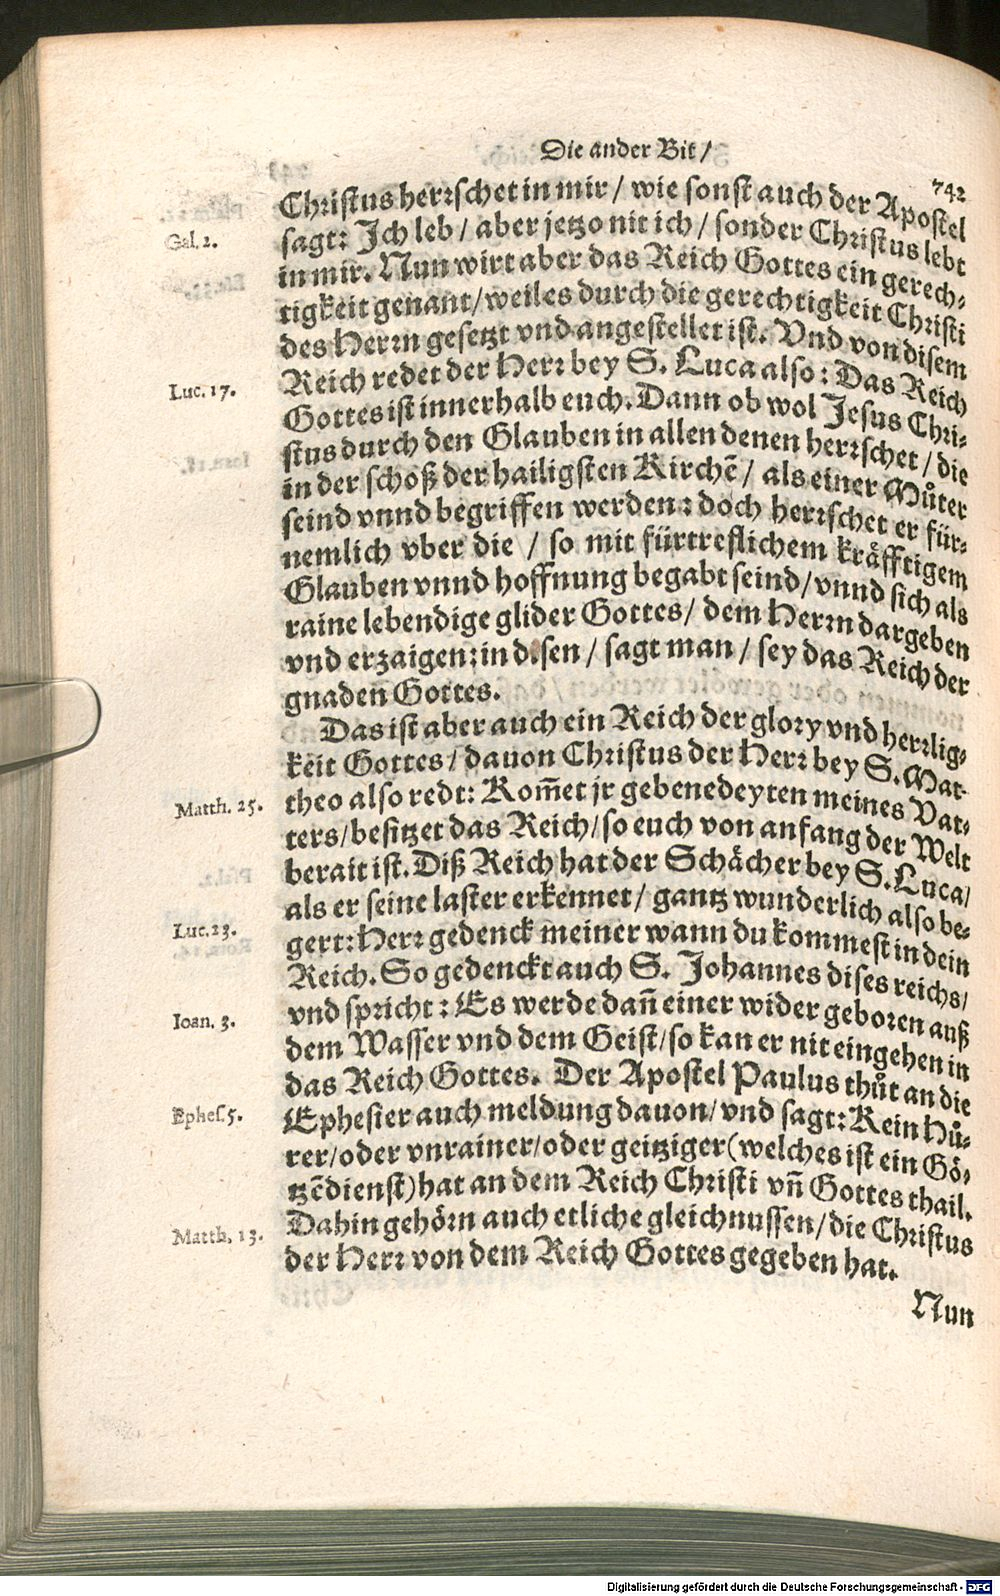 Die ander Bit /
742
Christus herꝛschet in mir / wie sonst auch der Apostel
Gal. 2.
sagt: Ich leb / aber jetzo nit ich / sonder Christus lebt
in mir. Nun wirt aber das Reich Gottes ein gerech⸗
tigkeit genant / weil es durch die gerechtigkeit Christi
des Herꝛn gesetzt vnd angestellet ist. Vnd von disem
Luc. 17.
Reich redet der Herꝛ bey S. Luca also: Das Reich
Gottes ist innerhalb euch. Dann ob wol Jesus Chri⸗
stus durch den Glauben in allen denen herꝛschet / die
in der schoß der hailigsten Kirchē / als einer Můter
seind vnnd begriffen werden: doch herꝛschet er für⸗
nemlich vber die / so mit fürtreflichem kräfftigem
Glauben vnnd hoffnung begabt seind / vnnd sich als
raine lebendige glider Gottes / dem Herꝛn dargeben
vnd erzaigen: in disen / sagt man / sey das Reich der
gnaden Gottes.
Das ist aber auch ein Reich der glory vnd herꝛlig⸗
keit Gottes / dauon Christus der Herꝛ bey S. Mat⸗
Matth. 25.
theo also redt: Kom̄et jr gebenedeyten meines Vat⸗
ters / besitzet das Reich / so euch von anfang der Welt
berait ist. Diß Reich hat der Schächer bey S. Luca /
als er seine laster erkennet / gantz wunderlich also be⸗
Luc. 23.
gert: Herꝛ gedenck meiner wann du kommest in dein
Reich. So gedenckt auch S. Johannes dises reichs /
Ioan. 3.
vnd spricht: Es werde dan̄ einer wider geboren auß
dem Wasser vnd dem Geist / so kan er nit eingehen in
das Reich Gottes. Der Apostel Paulus thůt an die
Ephes. 5.
Ephesier auch meldung dauon / vnd sagt: Kein Hů⸗
rer / oder vnrainer / oder geitziger (welches ist ein Gö⸗
tzēdienst) hat an dem Reich Christi vn̄ Gottes thail.
Matth. 13.
Dahin gehörn auch etliche gleichnussen / die Christus
der Herꝛ von dem Reich Gottes gegeben hat.
Nun
Digitalisierung gefördert durch die Deutsche Forschungsgemeinschaft - DFG